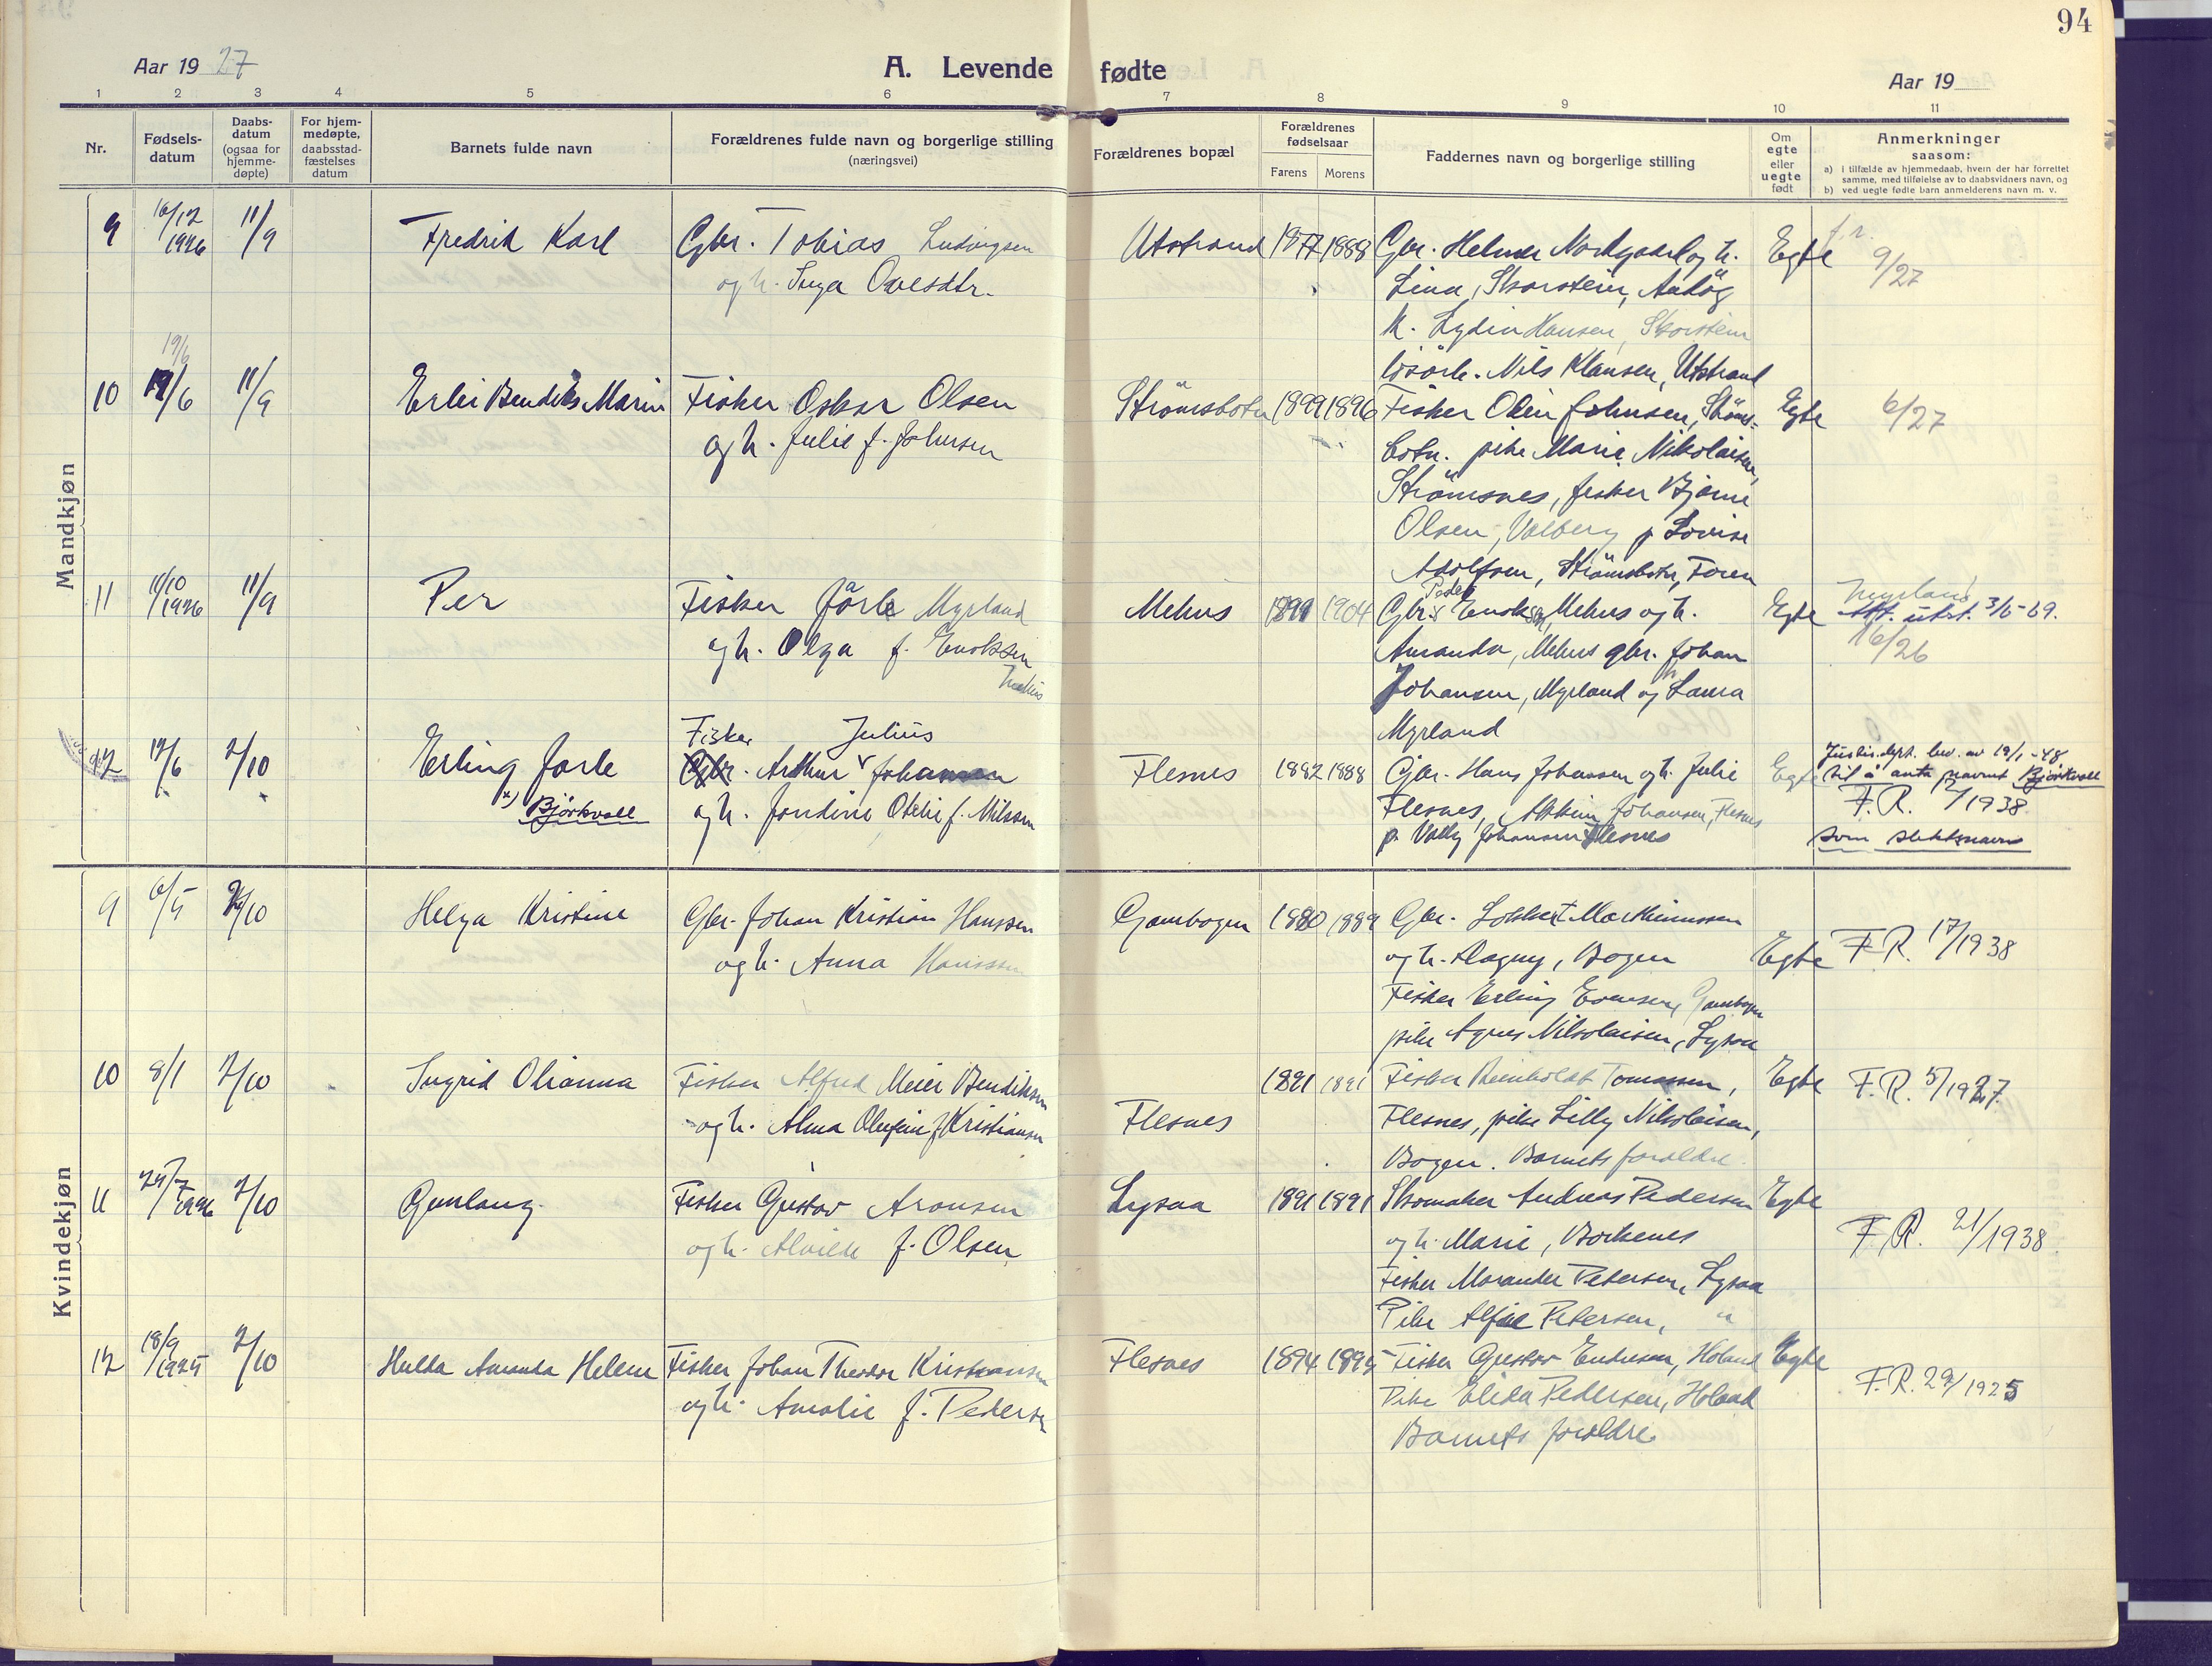 94
Aar 19 27
A. Levende fødte
Aar 19
1 2 3 4 5 6 7 8 9 10 11
Nr.
Fødsels-
datum
Daabs-
datum
(ogsaa for
hjemme-
døpte)
For hjem-
medøpte,
daabsstad-
fæstelses
datum
Barnets fulde navn
Forældrenes fulde navn og borgerlige stilling
(næringsvei)
Forældrenes bopæl
Forældrenes
fødselsaar
Farens Morens
Faddernes navn og borgerlige stilling
Om
egte
eller
uegte
født
Anmerkninger
saasom:
a) i tilfælde av hjemmedaab, hvem der har forrettet
samme, med tilføielse av to daabsvidners navn, og
b) ved uegte fødte barn anmelderens navn m. v.
Mandkjøn
9 16/12 1926 11/9 Fredrik Karl
Gbr. Tobias Ludvigsen
og h. Inga Ovesdtr.
Utstrand 1877 1888
Gbr. Helmer Norkgaard og h.
Lina, Skorstein, Andög
k. Lydia Hansen, Skorstein
lösarb. Nils Klausen, Utstrand
Egte
f.r.
9/27
19/6
10 19/6 11/9 Erlei Bendiks Marin
Fisker Oskar Olsen
og h. Julie f. Johnsen
Strömsbotn 1899 1896
Fisker Olin Johnsen, Ströms-
botn. pike Marie Nikolaisen,
Strömsnes, fisker Bjarne
Olsen, Valberg p Lovise
Adolfsen, Strömsbotn, Foren
Egte
6/27
11 11/10 1926 11/9 Per
Fisker Jarle Myrland
og h. Olga f. Enoksen
Mehus
Mehus 1899 1904
Peder
Gbr. Enoksen, Mehus og h.
Amanda, Mehus gbr. Johan
Johansen, Myrland og h. Laura
Myrland
Egte
Myrland
Att. utst. 3/6-69.
16/26
12 12/6 2/10 Erling Jarle
x) Björkvoll
Fisker Julius
Gbr. Arthur Johansen
og h. Jondine Otelie f. Nilssen
Flesnes 1882 1888
Gbr. Hans Johansen og h. Julie
Flesnes, Johansen, Flesnes
p. Vally Johansen Flesnes
Egte
Justis.dept. bev. av 19/1-48
til å anta navnet Björkvoll
F.R. 12/1938
som slektsnavn
Kvindekjøn
9 6/5 2/10 Helga Kristine
Gbr. Johan Kristian Hanssen
og h. Anna Hanssen
Gambogen 1880 1889
Gbr. Lokkert Marthinussen
og h. Dagny, Bogen
Fisker Erling Evensen, Gambogen
pike Agnes Nikolaisen, Lysaa
Egte
F.R. 17/1938
10 8/1 2/10 Ingrid Olianna
Fisker Alfred Meier Bendiksen
og h. Alma Olufine f Kristiansen
Flesnes 1891 1891
Fisker Reinholdt Tomassen,
Flesnes, pike Lilly Nikolaisen,
Bogen. Barnets foraldre.
Egte
F.R. 5/1927.
11 24/7 1926 2/10 Gunlaug
Fisker Gustav Aronsen
og h. Alvilde f. Olsen
Lysaa 1891 1891
Skomaker Andreas Pedersen
og h. Marie, Borkenes
Fisker Marander Petersen, Lysaa
Pike Petersen, "
Egte
F.R. 21/1938
12 18/9 1925 2/10 Hulda Amanda Helene
Fisker Johan Theodor Kristiansen
og h. Amalie f. Pedersen
Flesnes 1894 1895
Fisker Gustav Endresen, Holand
Pike Elida Pedersen, Holand
Barnets foraldre.
Egte
F.R. 29/1925